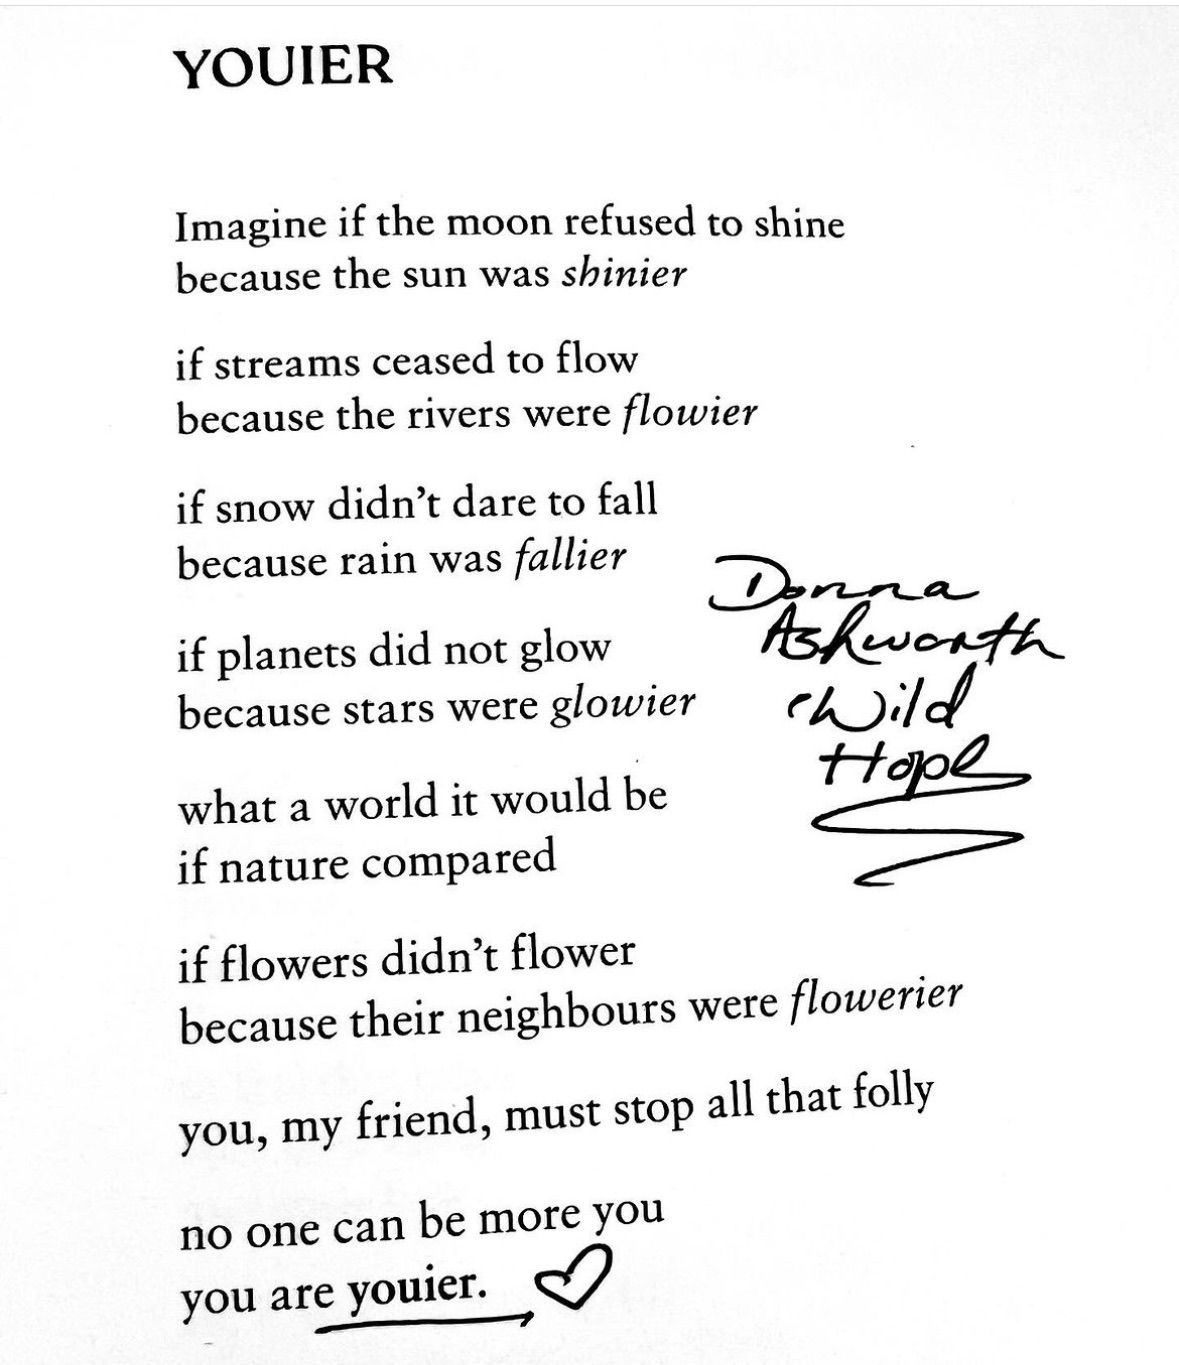 YOUIER
Imagine if the moon refused to shine
because the sun was shinier
if streams ceased to flow
because the rivers were flowier
if snow didn't dare to fall
because rain was fallier
if planets did not glow
because stars were glowier
what a world it would be
if nature compared
if flowers didn't flower
because their neighbours were flowerier
you, my friend, must stop all that folly
no one can be more you
you are youier.
Donna
Ashworth
Wild
Hope